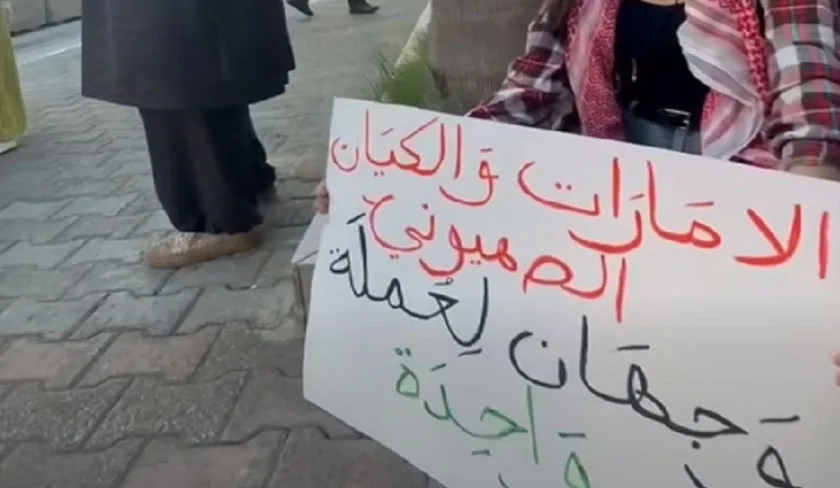 الامَارَات وَالكَيَان
الصهيونيّ
وَجهَان لِعُملَة
وَاحِدَة